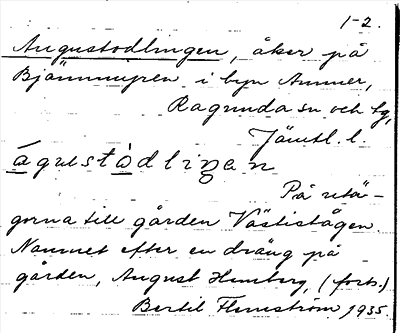 1-2.
Augustodlingen, åker på
Bjännmyren i byn Ammer,
Ragunda sn och tg,
Jämtl. l.
águstòdliŋan
På utä-
gorna till gården Västistågen.
Namnet efter en dräng på
gården, August Hemberg, (forts.)
Bertil Flemström 1935.